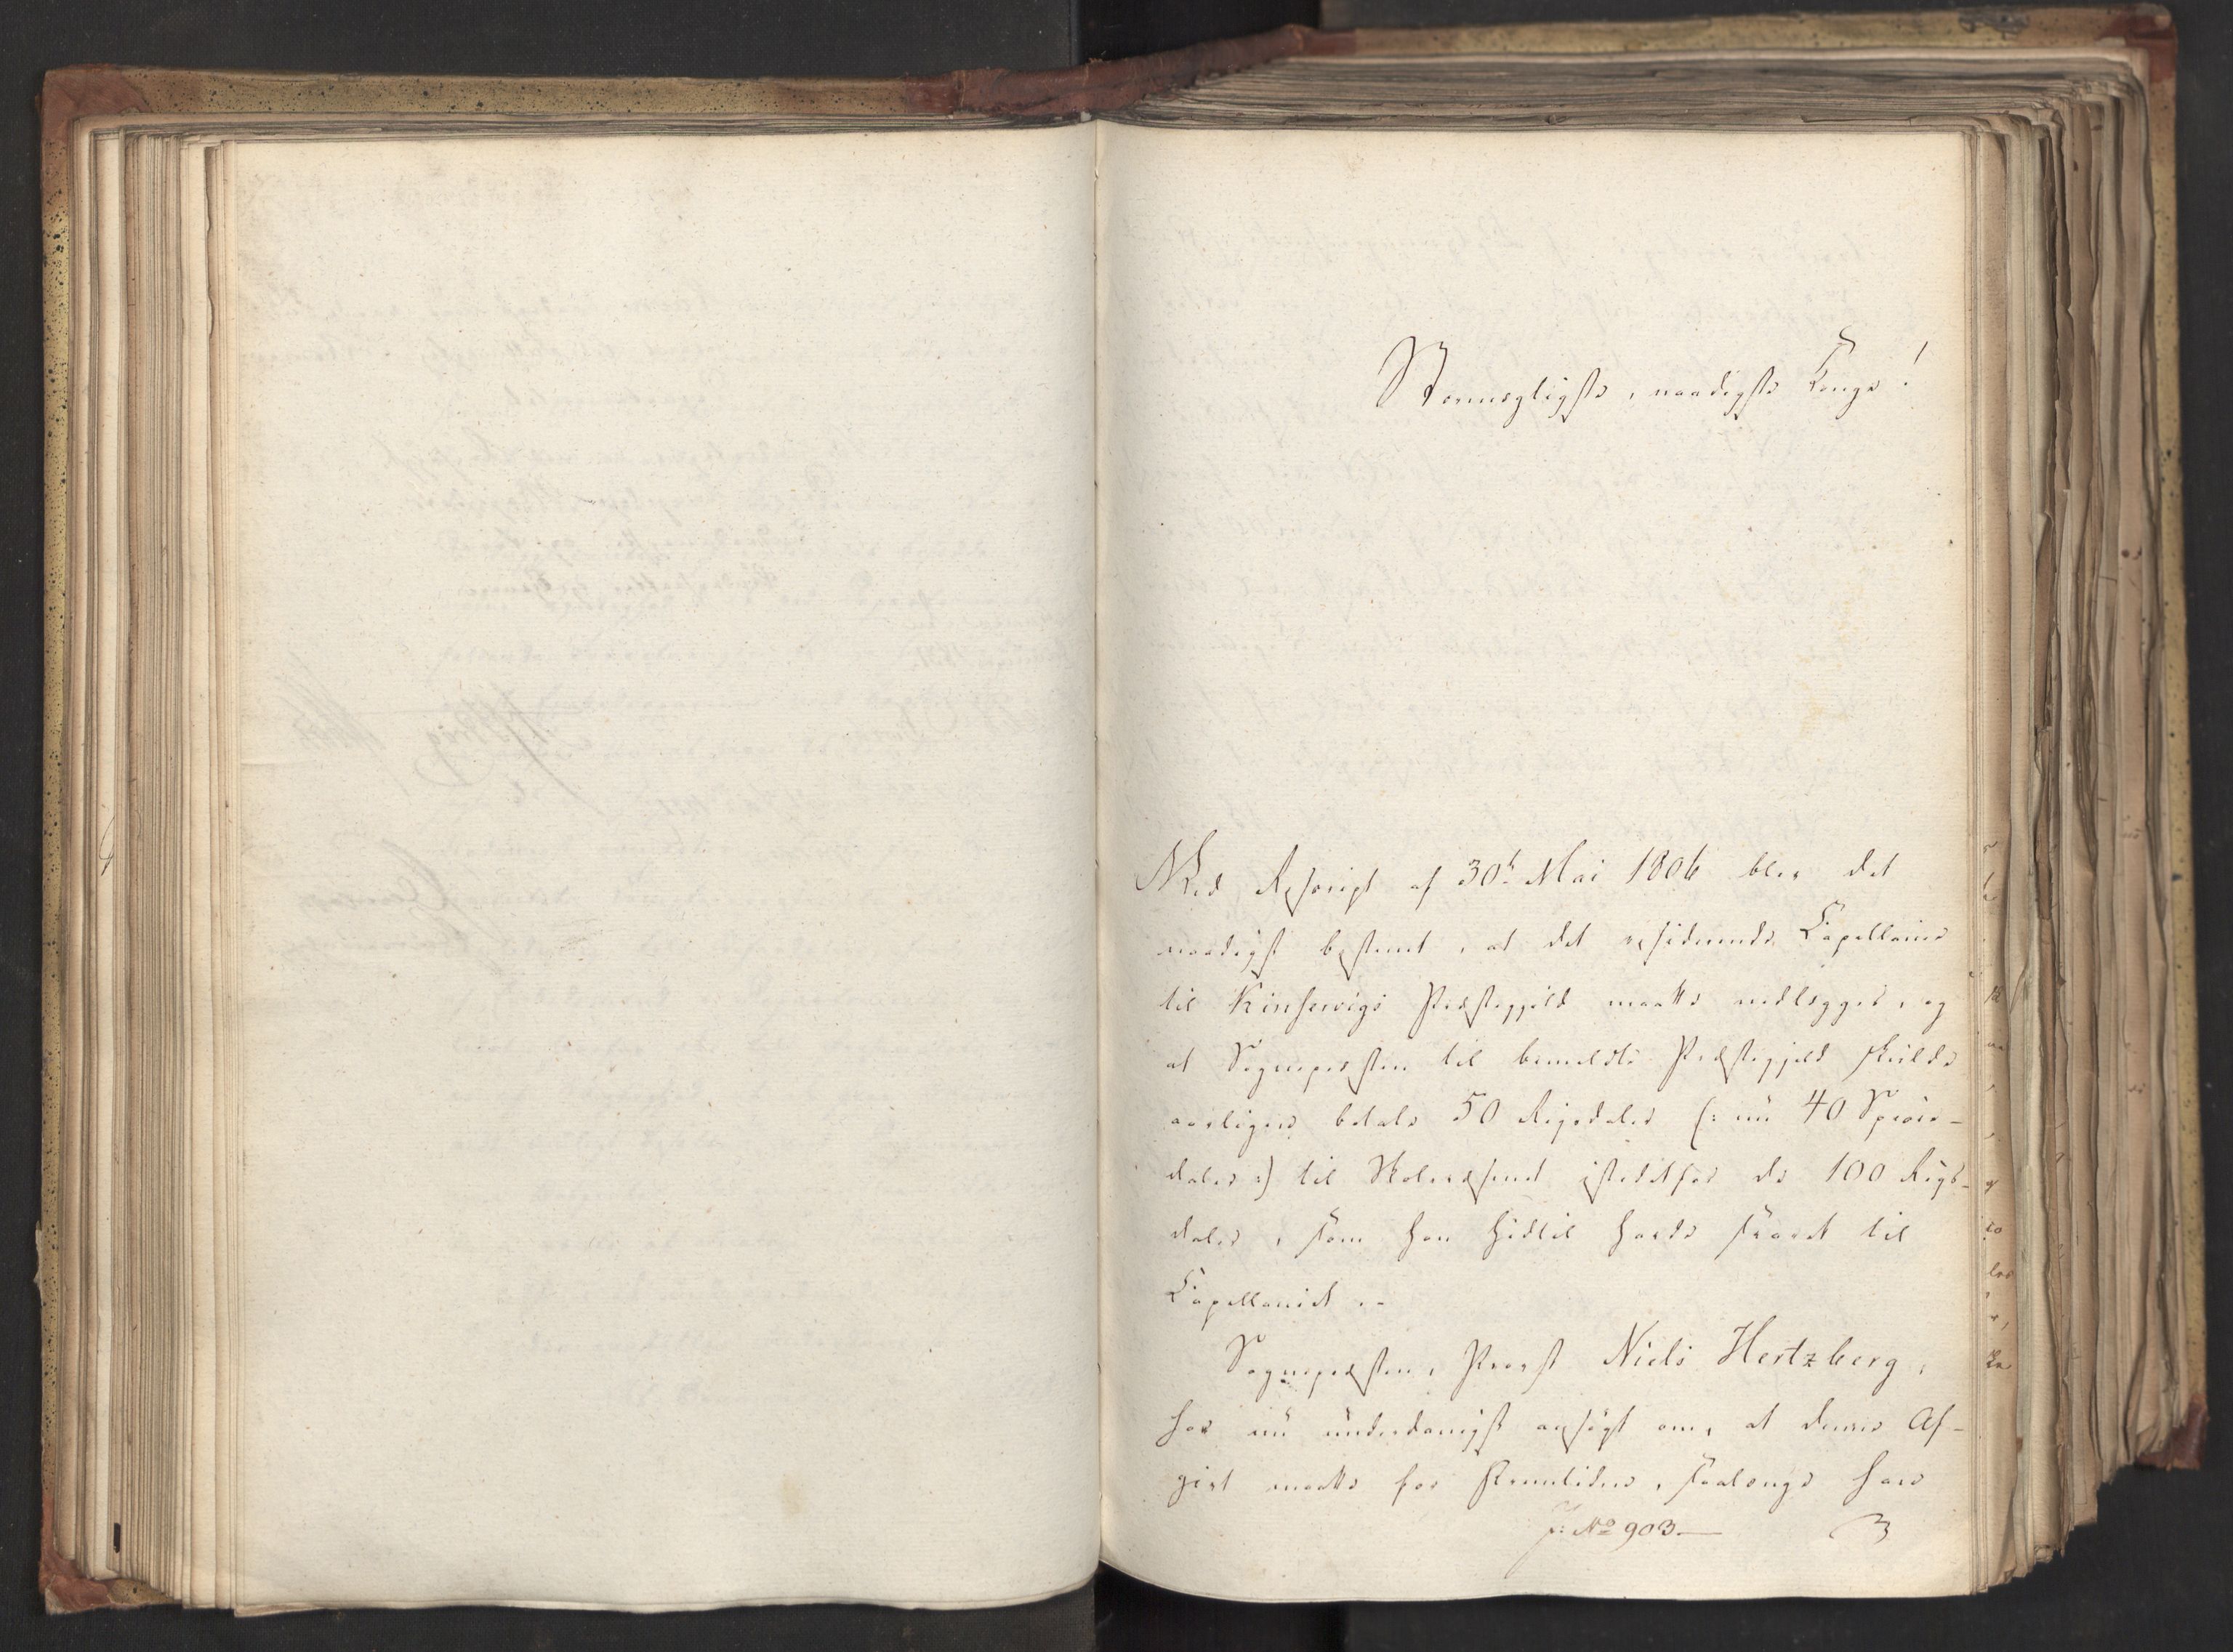 Stormægtigste, naadigste Konge!
Ved Rescript af 30t Mai 1806 blev det
naadigst bestemt, at det residerende Capellanie
til Kinservigs Præstegjeld maatte nedlægges, og
at Sognepræsten til bemeldte Præstegjeld skulde
aarligen betale 50 Rigsdaler (: nu 40 Specie-
daler :) til Skolevæsenet istedetfor de 100 Rigs-
daler, som han hidtil havde svaret til
Capellaniet.-
Sognepræsten, Provst Niels Hertzberg,
har nu underdanigst ansøgt om, at denne Af-
givt maatte for Fremtiden, saalænge han
J: No 903-